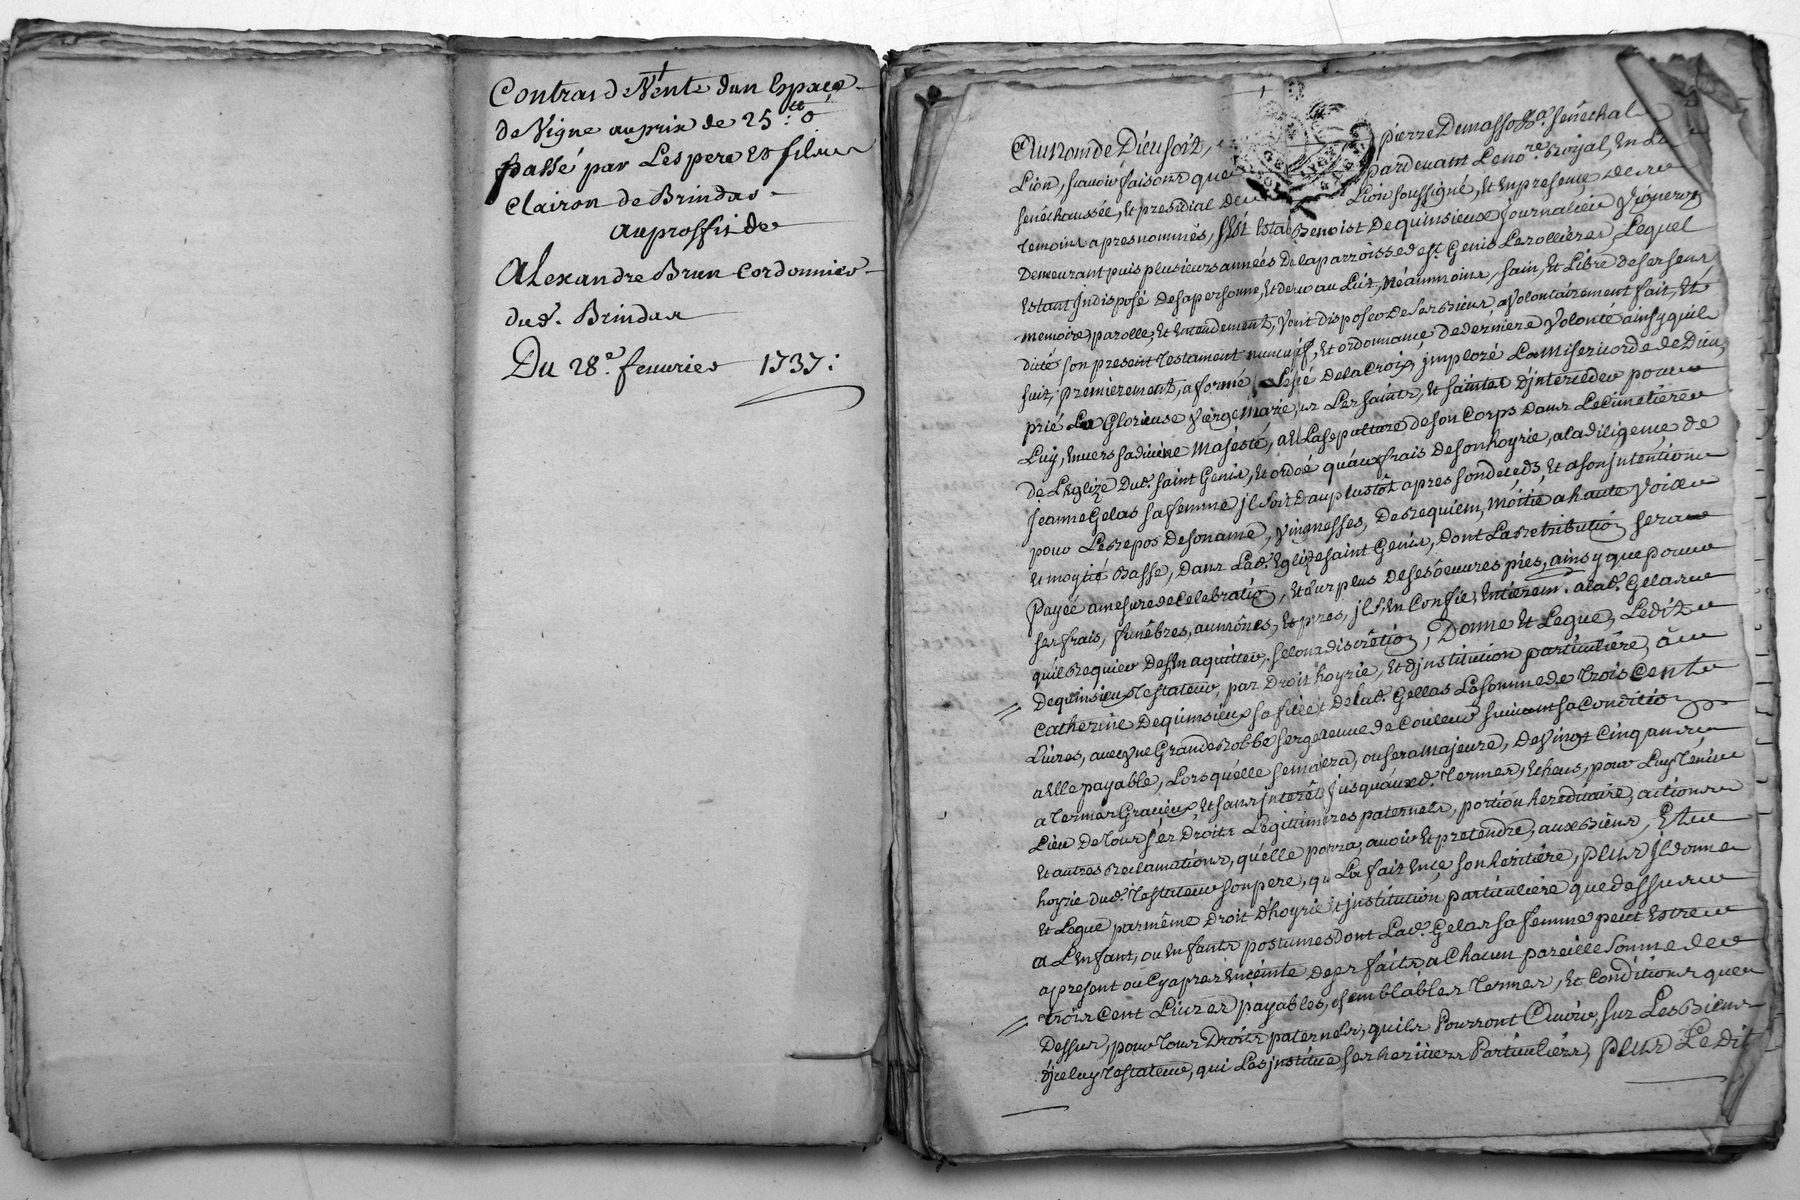 Contrat de Vente dun Espace
de Vigne au prix de 25 tt 0
passé par Les pere Et fils
Clairon de Brindas
au proffit de
Alexandre Brun Cordonnier
dud. Brindas
Du 28e. feuvrier 1737:
Au nom de Dieu soit, Pierre Dumas sénéchal
Lion, scavoir faisons que pardevant Le nore. Royal, En La
senéchaussée, Et presidial de Lion soussigné, Et En presence des
temoins apres nommés, fut Estably Benoist Dequinsieux Journalier Vigneron
Demeurant puis plusieurs années De la parroisse de st. Genis Les ollieres, Lequel
Estant Indisposé de sa personne, Et detenu au Lit, Néanmoins, sain, Et Libre de ses sens
memoire, parolle, Et Entendement, Veut disposer de ses Biens a Volontairement fait, Et
dicté son present testament nuncupatif, Et ordonnance de derniere Volonté ainsy quil
suit, premierement, a formé Le signe de la Croix, imploré La Misericorde de Dieu,
prié La Glorieuse Vierge Marie, Les saints, Et saintes d'interceder pour
Luy, Envers sa divine Majesté, a la sepulture de son Corps dans Le Cimetiere
de L'Eglize Dud. saint Genis, Et ordoé quaux frais de son hoyrie, a la diligence de
Jeanne Gelas sa femme Il soit dau plustôt apres son deceds, Et a son Intention
pour Le Repos de son ame, Vingt Messes, De Requiem, Moitié a haute Voix
Et moytié Basse, Dans Lad. Eglize de saint Genis, dont La retribution sera
payée a mesure de Celebration, Et surplus de ses oeuvres pies, ainsy que pour
ses frais, funêbres, aumônes, Et prieres, Il s'En Confie, Entierem. a lad. Gelas
quil Requier de s'En aquitter, selon sa discrétion, Donne Et Legue, Ledit
Dequinsieux Testateur par Droit d'hoyrie, Et d'institution particuliere, à
Catherine Dequinsieux sa fille, Et de lad. Gellas La somme de Trois Cent
Livres, avec une Grande Robbe serge neuve de Couleur suivant sa Condition
a Elle payable, Lors quelle se mariera, ou sera majeure, de Vingt Cinq ans
a termes Gracieux, Et sans Interêt, Jusquaux d. termes, Echeus, pour Luy Tenir
Lieu De tous ses Droits Legitimaires paternels, portion hereditaire, actions
Et autres Reclamations, qu'elle porra, avoir Et pretendre, aux Biens, Et
hoyrie dud. Testateur son pere, qui La fait En ce son heritière, plus Il donne
Et Legue par même Droit D'hoyrie Et Institution particuliere que dessus
a L'Enfant, ou Enfants postumes dont Lad. Gelas sa femme peut Estre
a present ou Cy apres Enceinte de ses faits a Chacun pareille somme de
trois Cent Livres payables, a semblables termes, Et Conditions que
dessus, pour tous Droits paternels, quils Pourront Avoir, sur Les Biens
d'iceluy Testateur, qui Les institue, ses heritiers Particuliers, plus Ledit